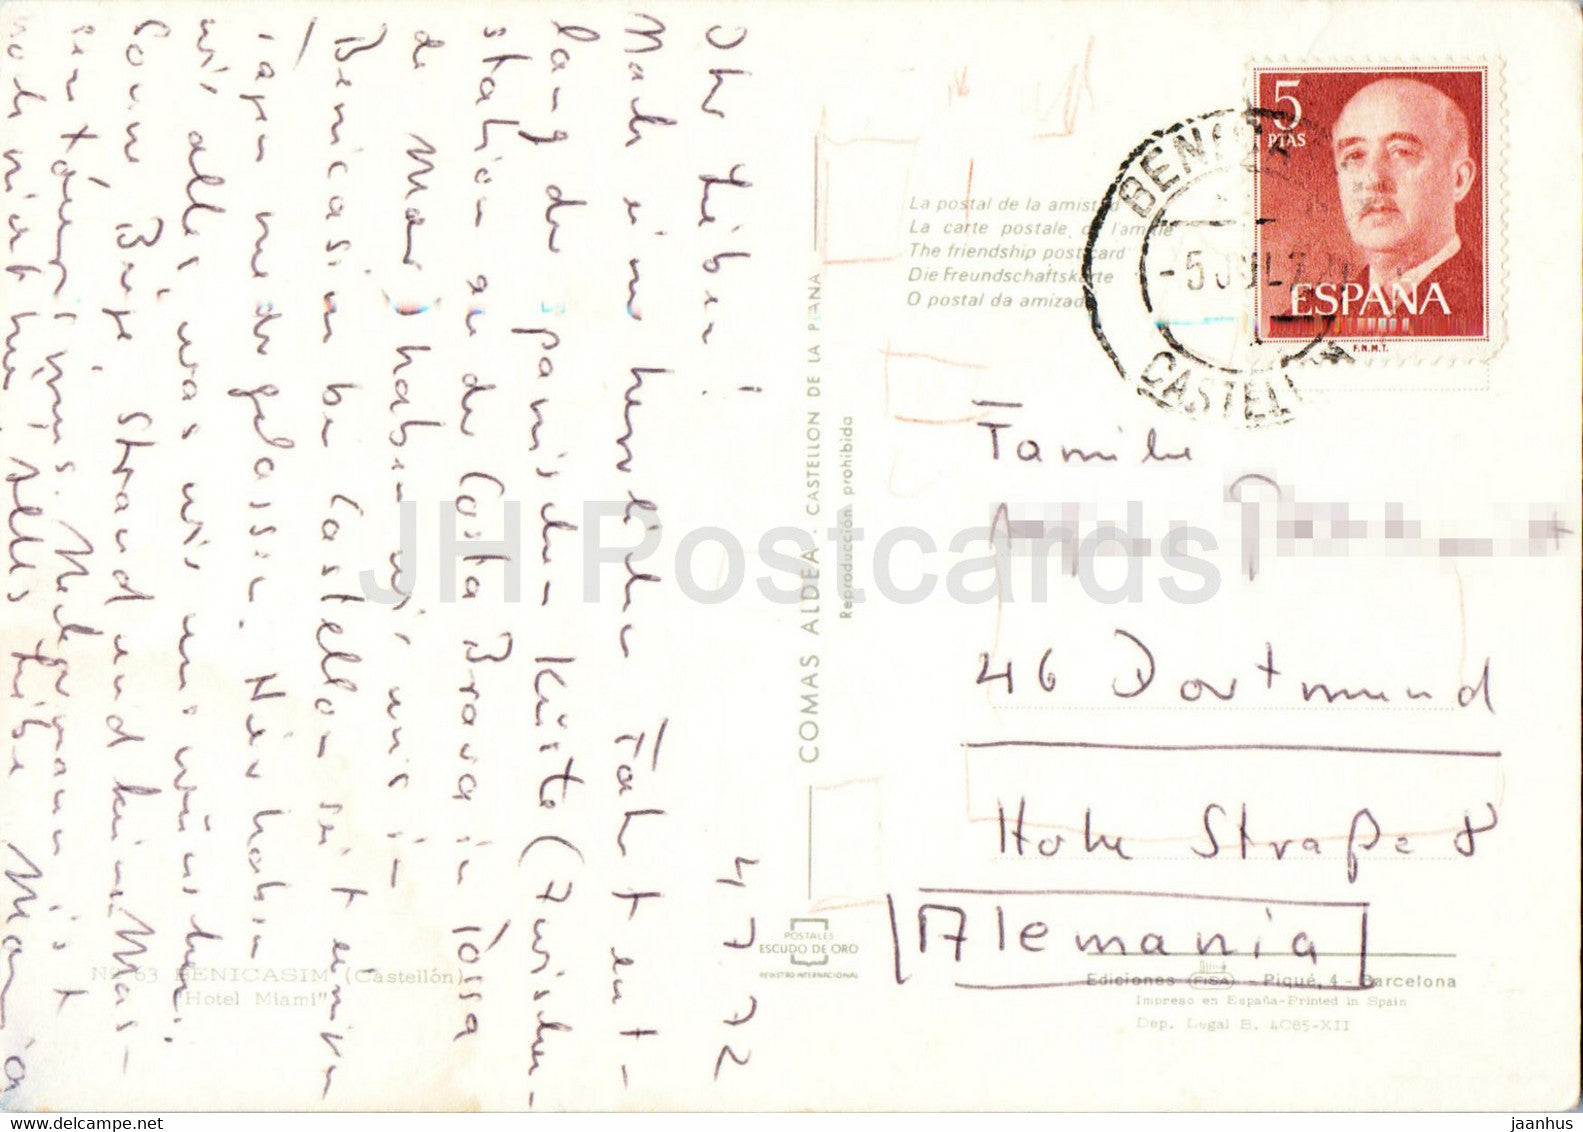 4 7 72
Ihr Lieben!
Nach einer herrlichen Fahrt ent-
lang der spanischen Küste (Zwischen-
station an der Costa Brava in Lossa
de Mar) haben wir uns in
Benicasim bei Castellon seit einigen
Tagen niedergelassen. Hier haben
wir alles, was wir uns wünschen:
Sonne, Berge, Strand und keinen Mas-
sentourismus. Nebenan ist
noch nicht hier. Alles Liebe
La postal de la amistad
La carte postale de l'amitié
The friendship postcard
Die Freundschaftskarte
O postal da amizade
COMAS ALDEA. CASTELLON DE LA PLANA
Reproducción prohibida
POSTALES
ESCUDO DE ORO
REGISTRO INTERNACIONAL
5
PTAS
ESPAÑA
F.N.M.T.
-5 JUL 7
CASTELLON
Familie
46 Dortmund
Hohe Straße 8
Alemania
Nº 63 BENICASIM (Castellón)
"Hotel Miami"
Ediciones FISA - Piqué, 4 - Barcelona
Impreso en España-Printed in Spain
Dep. Legal B. 4085-XII
JH Postcards
jaanhus
www.delcampe.net